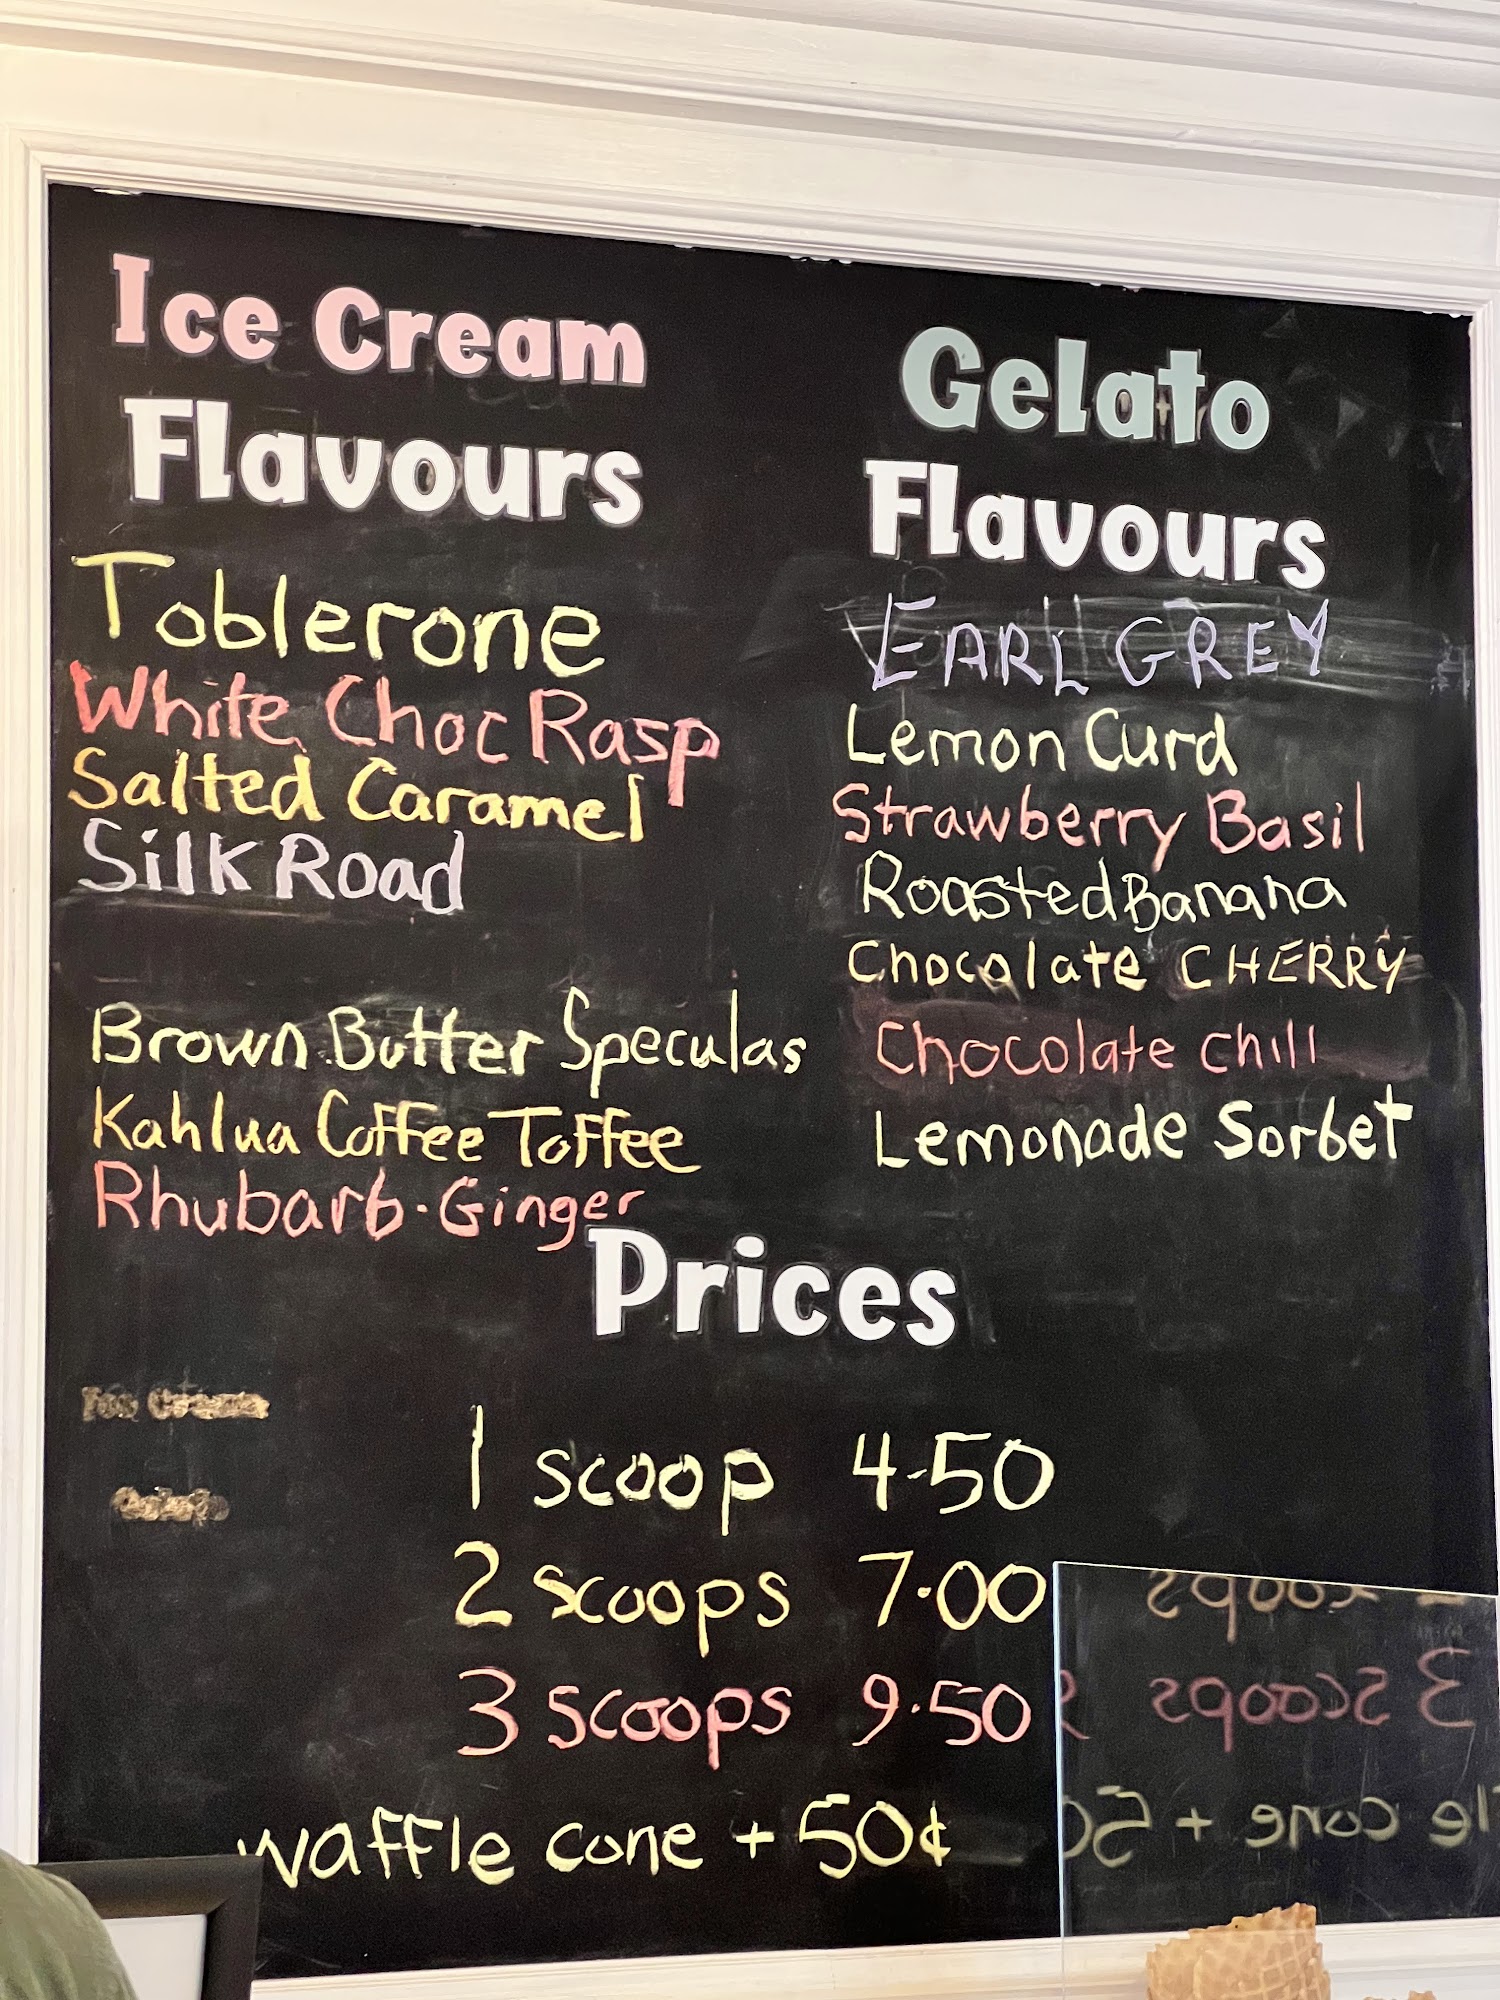 Ice Cream
Flavours
Toblerone
White Choc Rasp
Salted Caramel
Silk Road
Brown Butter Speculas
Kahlua Coffee Toffee
Rhubarb-Ginger
Gelato
Flavours
EARL GREY
Lemon Curd
Strawberry Basil
Roasted Banana
Chocolate CHERRY
Chocolate chill
Lemonade Sorbet
Prices
1 scoop 4-50
2 scoops 7.00
3 scoops 9.50
waffle cone + 50¢